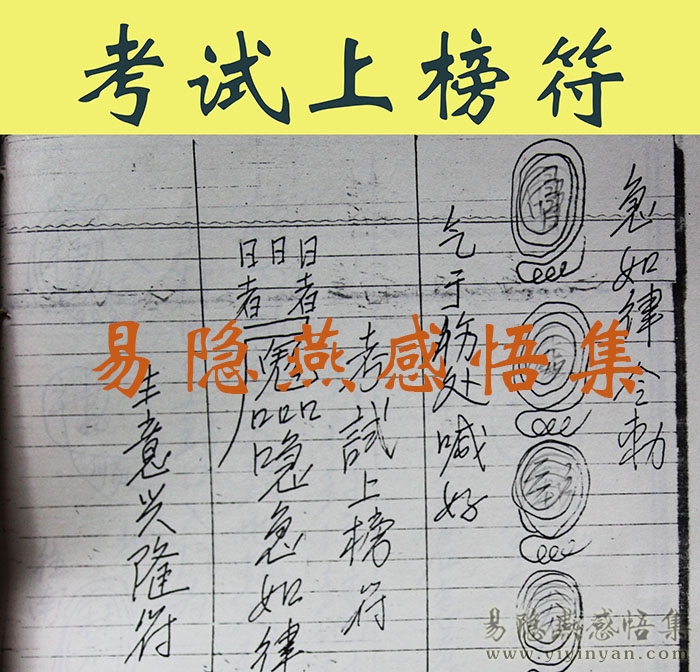 考试上榜符
急如律令勅
气于病处喊好
考試上榜符
日日日
者 者
急如律
生意兴隆符
易隐燕感悟集
易隐燕感悟集
www.yiyinyan.com